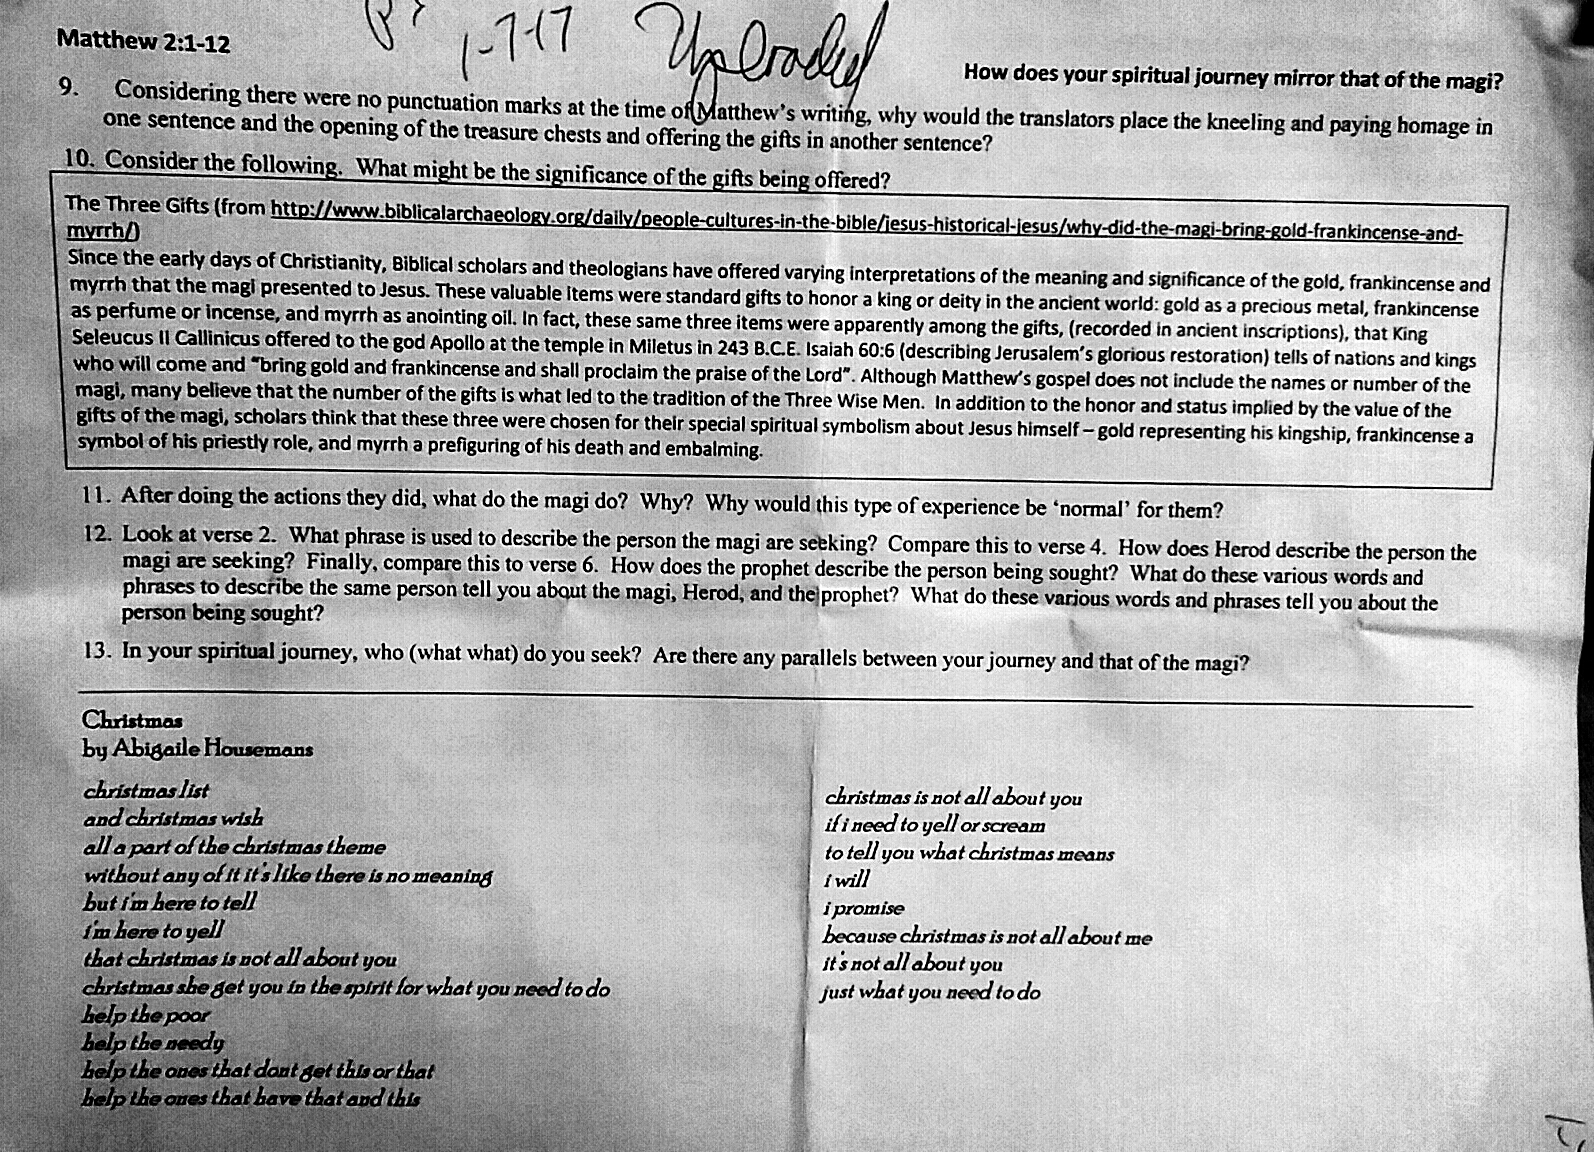 1-7-17 Uploaded
Matthew 2:1-12
How does your spiritual journey mirror that of the magi?
9. Considering there were no punctuation marks at the time of Matthew's writing, why would the translators place the kneeling and paying homage in
one sentence and the opening of the treasure chests and offering the gifts in another sentence?
10. Consider the following. What might be the significance of the gifts being offered?
The Three Gifts (from http://www.biblicalarchaeology.org/daily/people-cultures-in-the-bible/jesus-historical-jesus/why-did-the-magi-bring-gold-frankincense-and-
myrrh/)
Since the early days of Christianity, Biblical scholars and theologians have offered varying interpretations of the meaning and significance of the gold, frankincense and
myrrh that the magi presented to Jesus. These valuable items were standard gifts to honor a king or deity in the ancient world: gold as a precious metal, frankincense
as perfume or incense, and myrrh as anointing oil. In fact, these same three items were apparently among the gifts, (recorded in ancient inscriptions), that King
Seleucus II Callinicus offered to the god Apollo at the temple in Miletus in 243 B.C.E. Isaiah 60:6 (describing Jerusalem's glorious restoration) tells of nations and kings
who will come and "bring gold and frankincense and shall proclaim the praise of the Lord". Although Matthew's gospel does not include the names or number of the
magi, many believe that the number of the gifts is what led to the tradition of the Three Wise Men. In addition to the honor and status implied by the value of the
gifts of the magi, scholars think that these three were chosen for their special spiritual symbolism about Jesus himself – gold representing his kingship, frankincense a
symbol of his priestly role, and myrrh a prefiguring of his death and embalming.
11. After doing the actions they did, what do the magi do? Why? Why would this type of experience be 'normal' for them?
12. Look at verse 2. What phrase is used to describe the person the magi are seeking? Compare this to verse 4. How does Herod describe the person the
magi are seeking? Finally, compare this to verse 6. How does the prophet describe the person being sought? What do these various words and
phrases to describe the same person tell you about the magi, Herod, and the prophet? What do these various words and phrases tell you about the
person being sought?
13. In your spiritual journey, who (what what) do you seek? Are there any parallels between your journey and that of the magi?
Christmas
by Abigaile Housemans
christmas list
and christmas wish
all a part of the christmas theme
without any of it it's like there is no meaning
but i'm here to tell
i'm here to yell
that christmas is not all about you
christmas she get you in the spirit for what you need to do
help the poor
help the needy
help the ones that dont get this or that
help the ones that have that and this
christmas is not all about you
if i need to yell or scream
to tell you what christmas means
i will
i promise
because christmas is not all about me
it's not all about you
just what you need to do